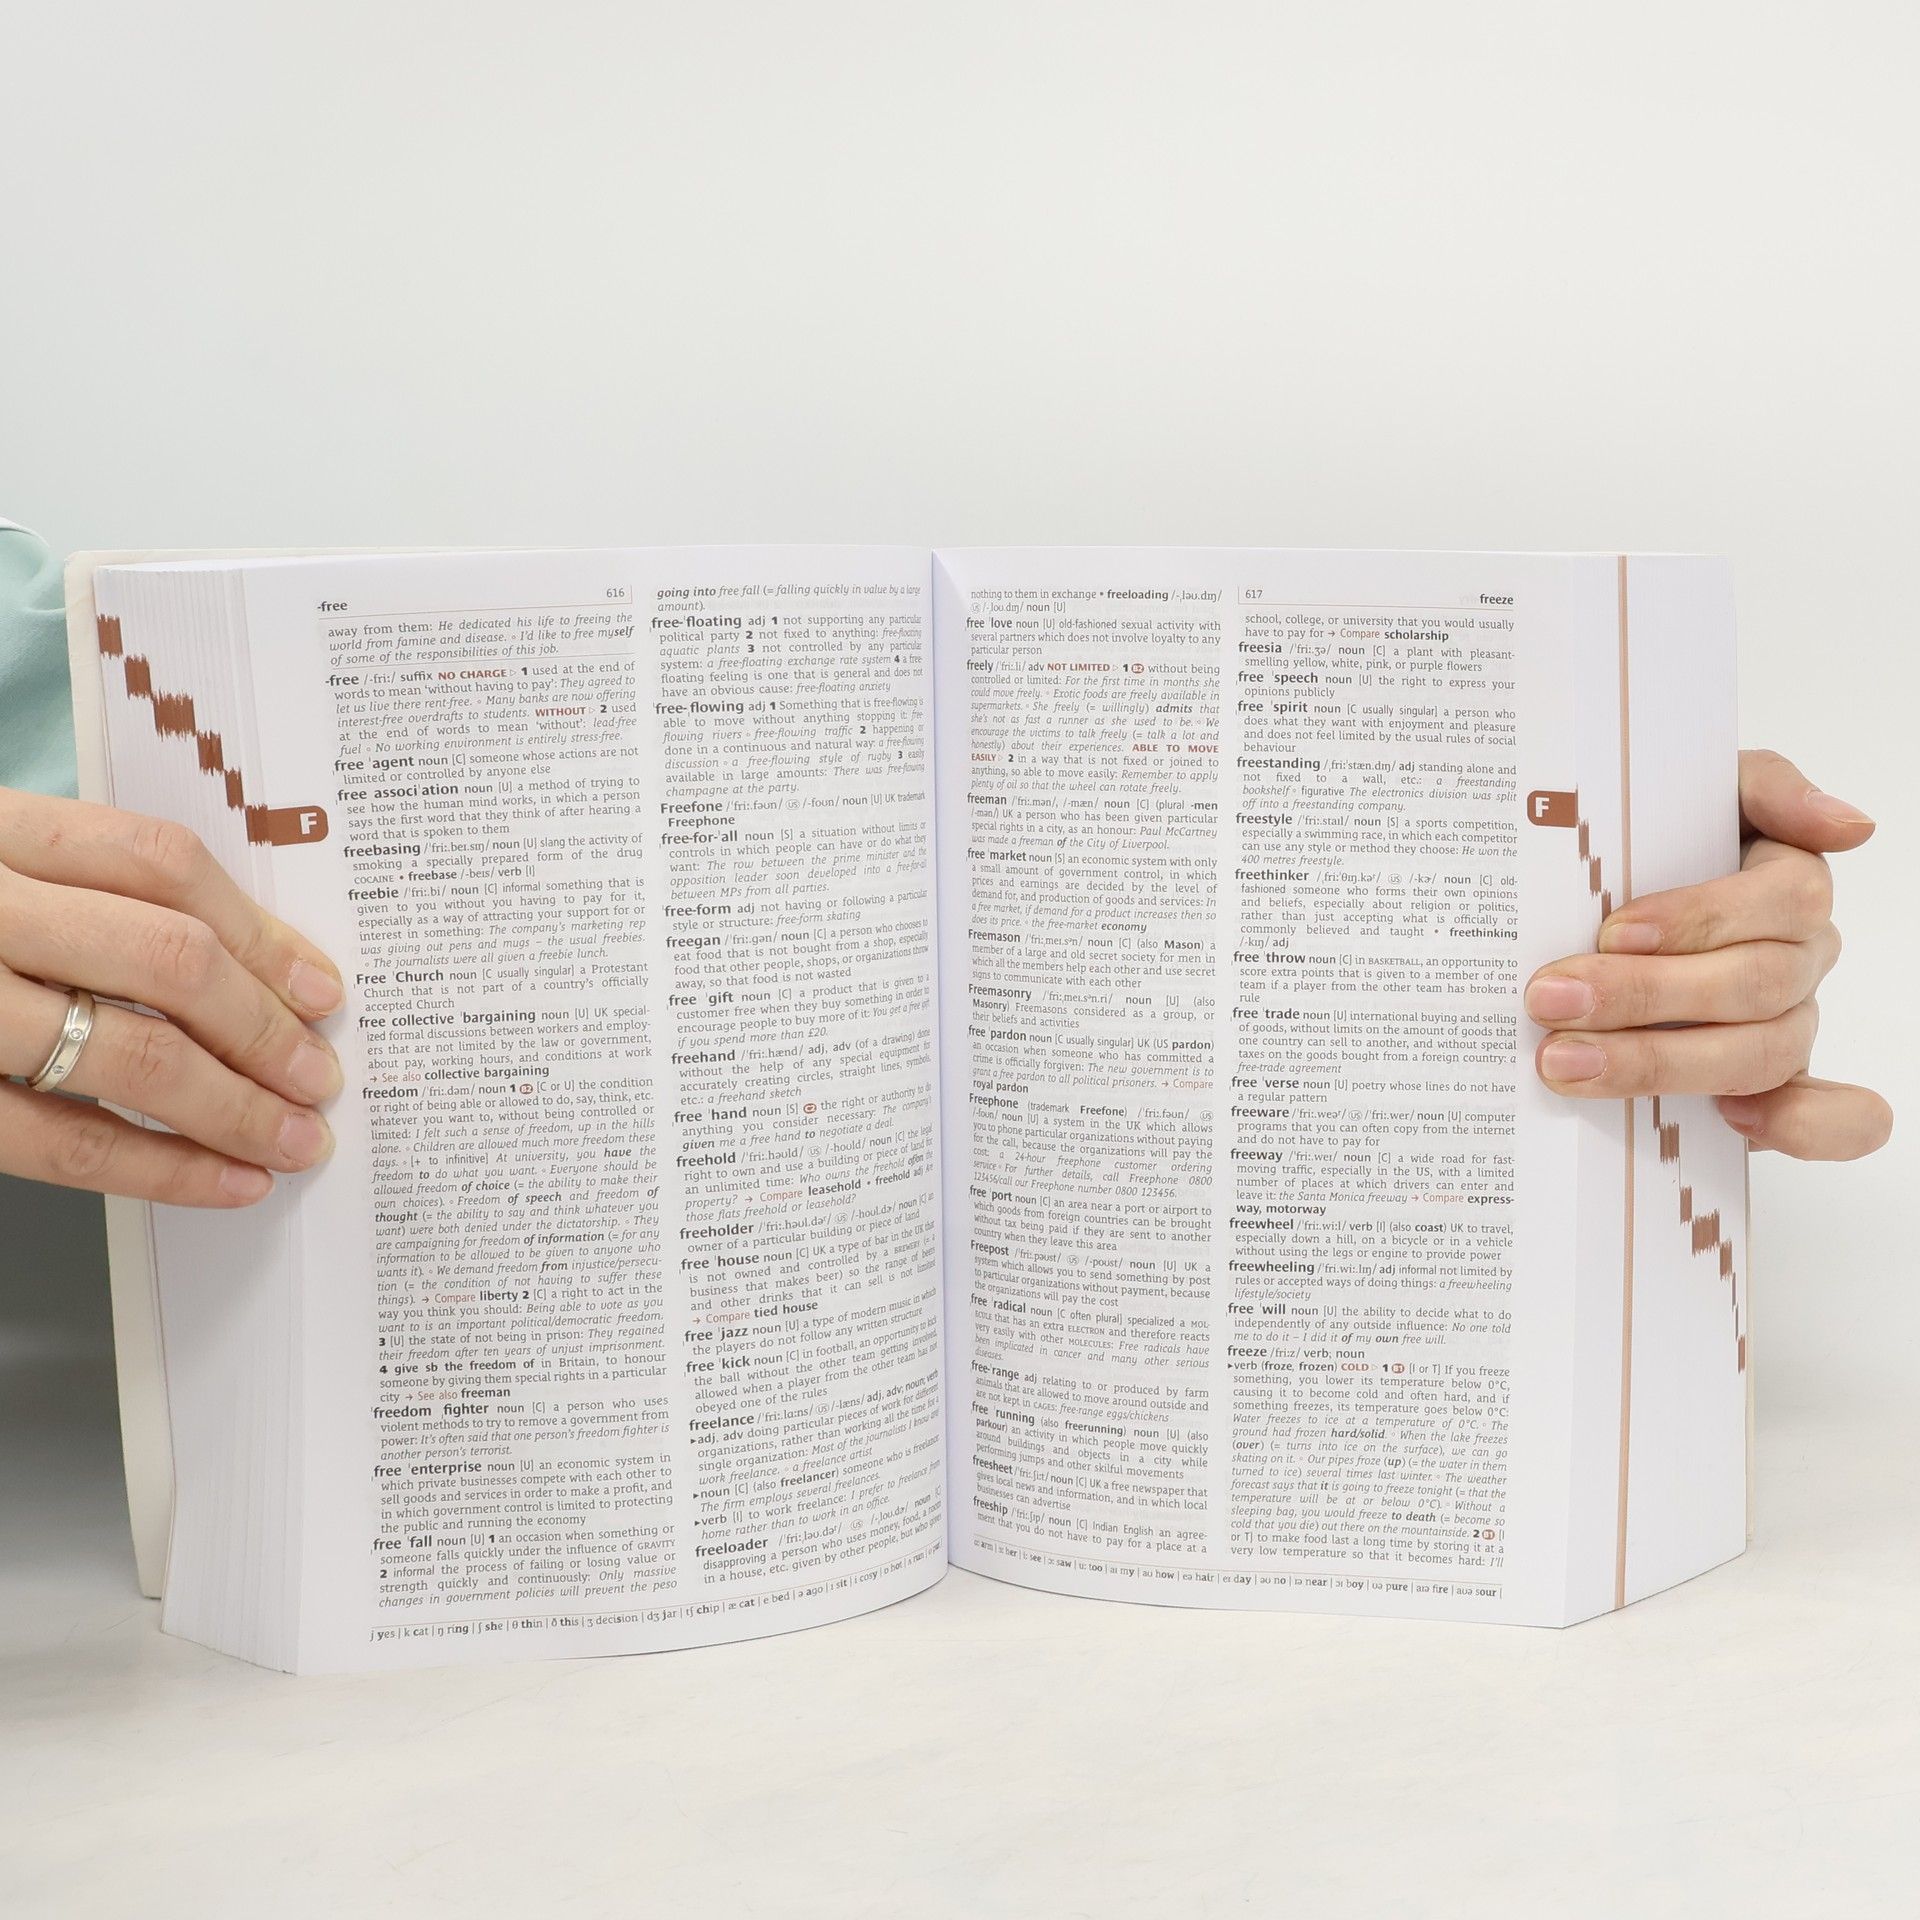 -free
616
away from them: He dedicated his life to freeing the
world from famine and disease. ◦ I'd like to free myself
of some of the responsibilities of this job.
-free /-friː/ suffix NO CHARGE ▷ 1 used at the end of
words to mean 'without having to pay': They agreed to
let us live there rent-free. ◦ Many banks are now offering
interest-free overdrafts to students. WITHOUT ▷ 2 used
at the end of words to mean 'without': lead-free
fuel ◦ No working environment is entirely stress-free.
ˌfree ˈagent noun [C] someone whose actions are not
limited or controlled by anyone else
ˌfree associˈation noun [U] a method of trying to
see how the human mind works, in which a person
says the first word that they think of after hearing a
word that is spoken to them
freebasing /ˈfriː.beɪ.sɪŋ/ noun [U] slang the activity of
smoking a specially prepared form of the drug
COCAINE • freebase /-beɪs/ verb [I]
freebie /ˈfriː.bi/ noun [C] informal something that is
given to you without you having to pay for it,
especially as a way of attracting your support for or
interest in something: The company's marketing rep
was giving out pens and mugs – the usual freebies.
◦ The journalists were all given a freebie lunch.
ˌFree ˈChurch noun [C usually singular] a Protestant
Church that is not part of a country's officially
accepted Church
ˌfree collective ˈbargaining noun [U] UK special-
ized formal discussions between workers and employ-
ers that are not limited by the law or government,
about pay, working hours, and conditions at work
→ See also collective bargaining
freedom /ˈfriː.dəm/ noun 1 B2 [C or U] the condition
or right of being able or allowed to do, say, think, etc.
whatever you want to, without being controlled or
limited: I felt such a sense of freedom, up in the hills
alone. ◦ Children are allowed much more freedom these
days. ◦ [+ to infinitive] At university, you have the
freedom to do what you want. ◦ Everyone should be
allowed freedom of choice (= the ability to make their
own choices). ◦ Freedom of speech and freedom of
thought (= the ability to say and think whatever you
want) were both denied under the dictatorship. ◦ They
are campaigning for freedom of information (= for any
information to be allowed to be given to anyone who
wants it). ◦ We demand freedom from injustice/persecu-
tion (= the condition of not having to suffer these
things). → Compare liberty 2 [C] a right to act in the
way you think you should: Being able to vote as you
want to is an important political/democratic freedom.
3 [U] the state of not being in prison: They regained
their freedom after ten years of unjust imprisonment.
4 give sb the freedom of in Britain, to honour
someone by giving them special rights in a particular
city → See also freeman
ˈfreedom ˌfighter noun [C] a person who uses
violent methods to try to remove a government from
power: It's often said that one person's freedom fighter is
another person's terrorist.
ˌfree ˈenterprise noun [U] an economic system in
which private businesses compete with each other to
sell goods and services in order to make a profit, and
in which government control is limited to protecting
the public and running the economy
ˌfree ˈfall noun [U] 1 an occasion when something or
someone falls quickly under the influence of GRAVITY
2 informal the process of failing or losing value or
strength quickly and continuously: Only massive
changes in government policies will prevent the peso
going into free fall (= falling quickly in value by a large
amount).
ˌfree-ˈfloating adj 1 not supporting any particular
political party 2 not fixed to anything: free-floating
aquatic plants 3 not controlled by any particular
system: a free-floating exchange rate system 4 a free-
floating feeling is one that is general and does not
have an obvious cause: free-floating anxiety
ˈfree-ˌflowing adj 1 Something that is free-flowing is
able to move without anything stopping it: free-
flowing rivers ◦ free-flowing traffic 2 happening or
done in a continuous and natural way: a free-flowing
discussion ◦ a free-flowing style of rugby 3 easily
available in large amounts: There was free-flowing
champagne at the party.
Freefone /ˈfriː.fəʊn/ US /-foʊn/ noun [U] UK trademark
Freephone
ˌfree-for-ˈall noun [S] a situation without limits or
controls in which people can have or do what they
want: The row between the prime minister and the
opposition leader soon developed into a free-for-all
between MPs from all parties.
ˈfree-form adj not having or following a particular
style or structure: free-form skating
freegan /ˈfriː.gən/ noun [C] a person who chooses to
eat food that is not bought from a shop, especially
food that other people, shops, or organizations throw
away, so that food is not wasted
ˌfree ˈgift noun [C] a product that is given to a
customer free when they buy something in order to
encourage people to buy more of it: You get a free gift
if you spend more than £20.
freehand /ˈfriː.hænd/ adj, adv (of a drawing) done
without the help of any special equipment for
accurately creating circles, straight lines, symbols,
etc.: a freehand sketch
ˌfree ˈhand noun [S] the right or authority to do
anything you consider necessary: The company's
given me a free hand to negotiate a deal.
freehold /ˈfriː.həʊld/ US /-hoʊld/ noun [C] the legal
right to own and use a building or piece of land for
an unlimited time: Who owns the freehold of/on the
property? → Compare leasehold • freehold adj Are
those flats freehold or leasehold?
freeholder /ˈfriː.həʊl.dəʳ/ US /-hoʊl.dɚ/ noun [C] an
owner of a particular building or piece of land
ˌfree ˈhouse noun [C] UK a type of bar in the UK that
is not owned and controlled by a BREWERY (= a
business that makes beer) so the range of beers
and other drinks that it can sell is not limited
→ Compare tied house
ˌfree ˈjazz noun [U] a type of modern music in which
the players do not follow any written structure
ˌfree ˈkick noun [C] in football, an opportunity to kick
the ball without the other team getting involved,
allowed when a player from the other team has not
obeyed one of the rules
freelance /ˈfriː.lɑːns/ US /-læns/ adj, adv; noun; verb
▸adj, adv doing particular pieces of work for different
organizations, rather than working all the time for a
single organization: Most of the journalists I know are/
work freelance. ◦ a freelance artist
▸noun [C] (also freelancer) someone who is freelance:
The firm employs several freelances.
▸verb [I] to work freelance: I prefer to freelance from
home rather than to work in an office.
freeloader /ˈfriːˌləʊ.dəʳ/ US /-ˌloʊ.dɚ/ noun [C]
disapproving a person who uses money, food, a room
in a house, etc. given by other people, but who gives
j yes | k cat | ŋ ring | ʃ she | θ thin | ð this | ʒ decision | dʒ jar | tʃ chip | æ cat | e bed | ə ago | ɪ sit | i cosy | ɒ hot | ʌ run | ʊ put
F
617
freeze
nothing to them in exchange • freeloading /-ˌləʊ.dɪŋ/
US /-ˌloʊ.dɪŋ/ noun [U]
ˌfree ˈlove noun [U] old-fashioned sexual activity with
several partners which does not involve loyalty to any
particular person
freely /ˈfriː.li/ adv NOT LIMITED ▷ 1 B2 without being
controlled or limited: For the first time in months she
could move freely. ◦ Exotic foods are freely available in
supermarkets. ◦ She freely (= willingly) admits that
she's not as fast a runner as she used to be. ◦ We
encourage the victims to talk freely (= talk a lot and
honestly) about their experiences. ABLE TO MOVE
EASILY ▷ 2 in a way that is not fixed or joined to
anything, so able to move easily: Remember to apply
plenty of oil so that the wheel can rotate freely.
freeman /ˈfriː.mən/, /-mæn/ noun [C] (plural -men
/-mən/) UK a person who has been given particular
special rights in a city, as an honour: Paul McCartney
was made a freeman of the City of Liverpool.
ˌfree ˈmarket noun [S] an economic system with only
a small amount of government control, in which
prices and earnings are decided by the level of
demand for, and production of goods and services: In
a free market, if demand for a product increases then so
does its price. ◦ the free-market economy
Freemason /ˈfriːˌmeɪ.sᵊn/ noun [C] (also Mason) a
member of a large and old secret society for men in
which all the members help each other and use secret
signs to communicate with each other
Freemasonry /ˈfriːˌmeɪ.sᵊn.ri/ noun [U] (also
Masonry) Freemasons considered as a group, or
their beliefs and activities
ˌfree ˈpardon noun [C usually singular] UK (US pardon)
an occasion when someone who has committed a
crime is officially forgiven: The new government is to
grant a free pardon to all political prisoners. → Compare
royal pardon
Freephone (trademark Freefone) /ˈfriː.fəʊn/ US
/-foʊn/ noun [U] a system in the UK which allows
you to phone particular organizations without paying
for the call, because the organizations will pay the
cost: a 24-hour freephone customer ordering
service ◦ For further details, call Freephone 0800
123456/call our Freephone number 0800 123456.
ˌfree ˈport noun [C] an area near a port or airport to
which goods from foreign countries can be brought
without tax being paid if they are sent to another
country when they leave this area
Freepost /ˈfriː.pəʊst/ US /-poʊst/ noun [U] UK a
system which allows you to send something by post
to particular organizations without payment, because
the organizations will pay the cost
ˌfree ˈradical noun [C often plural] specialized a MOL-
ECULE that has an extra ELECTRON and therefore reacts
very easily with other MOLECULES: Free radicals have
been implicated in cancer and many other serious
diseases.
ˌfree-ˈrange adj relating to or produced by farm
animals that are allowed to move around outside and
are not kept in CAGES: free-range eggs/chickens
ˌfree ˈrunning (also freerunning) noun [U] (also
parkour) an activity in which people move quickly
around buildings and objects in a city while
performing jumps and other skilful movements
freesheet /ˈfriː.ʃiːt/ noun [C] UK a free newspaper that
gives local news and information, and in which local
businesses can advertise
freeship /ˈfriː.ʃɪp/ noun [C] Indian English an agree-
ment that you do not have to pay for a place at a
school, college, or university that you would usually
have to pay for → Compare scholarship
freesia /ˈfriː.ʒə/ noun [C] a plant with pleasant-
smelling yellow, white, pink, or purple flowers
ˌfree ˈspeech noun [U] the right to express your
opinions publicly
ˌfree ˈspirit noun [C usually singular] a person who
does what they want with enjoyment and pleasure
and does not feel limited by the usual rules of social
behaviour
freestanding /ˌfriːˈstæn.dɪŋ/ adj standing alone and
not fixed to a wall, etc.: a freestanding
bookshelf ◦ figurative The electronics division was split
off into a freestanding company.
freestyle /ˈfriː.staɪl/ noun [S] a sports competition,
especially a swimming race, in which each competitor
can use any style or method they choose: He won the
400 metres freestyle.
freethinker /ˌfriːˈθɪŋ.kəʳ/ US /-kɚ/ noun [C] old-
fashioned someone who forms their own opinions
and beliefs, especially about religion or politics,
rather than just accepting what is officially or
commonly believed and taught • freethinking
/-kɪŋ/ adj
ˌfree ˈthrow noun [C] in BASKETBALL, an opportunity to
score extra points that is given to a member of one
team if a player from the other team has broken a
rule
ˌfree ˈtrade noun [U] international buying and selling
of goods, without limits on the amount of goods that
one country can sell to another, and without special
taxes on the goods bought from a foreign country: a
free-trade agreement
ˌfree ˈverse noun [U] poetry whose lines do not have
a regular pattern
freeware /ˈfriː.weəʳ/ US /ˈfriː.wer/ noun [U] computer
programs that you can often copy from the internet
and do not have to pay for
freeway /ˈfriː.weɪ/ noun [C] a wide road for fast-
moving traffic, especially in the US, with a limited
number of places at which drivers can enter and
leave it: the Santa Monica freeway → Compare express-
way, motorway
freewheel /ˈfriː.wiːl/ verb [I] (also coast) UK to travel,
especially down a hill, on a bicycle or in a vehicle
without using the legs or engine to provide power
freewheeling /ˈfriː.wiː.lɪŋ/ adj informal not limited by
rules or accepted ways of doing things: a freewheeling
lifestyle/society
ˌfree ˈwill noun [U] the ability to decide what to do
independently of any outside influence: No one told
me to do it – I did it of my own free will.
freeze /friːz/ verb; noun
▸verb (froze, frozen) COLD ▷ 1 B1 [I or T] If you freeze
something, you lower its temperature below 0°C,
causing it to become cold and often hard, and if
something freezes, its temperature goes below 0°C:
Water freezes to ice at a temperature of 0°C. ◦ The
ground had frozen hard/solid. ◦ When the lake freezes
(over) (= turns into ice on the surface), we can go
skating on it. ◦ Our pipes froze (up) (= the water in them
turned to ice) several times last winter. ◦ The weather
forecast says that it is going to freeze tonight (= that the
temperature will be at or below 0°C). ◦ Without a
sleeping bag, you would freeze to death (= become so
cold that you die) out there on the mountainside. 2 B1 [I
or T] to make food last a long time by storing it at a
very low temperature so that it becomes hard: I'll
ɑː arm | ɜː her | iː see | ɔː saw | uː too | aɪ my | aʊ how | eə hair | eɪ day | əʊ no | ɪə near | ɔɪ boy | ʊə pure | aɪə fire | aʊə sour |
F